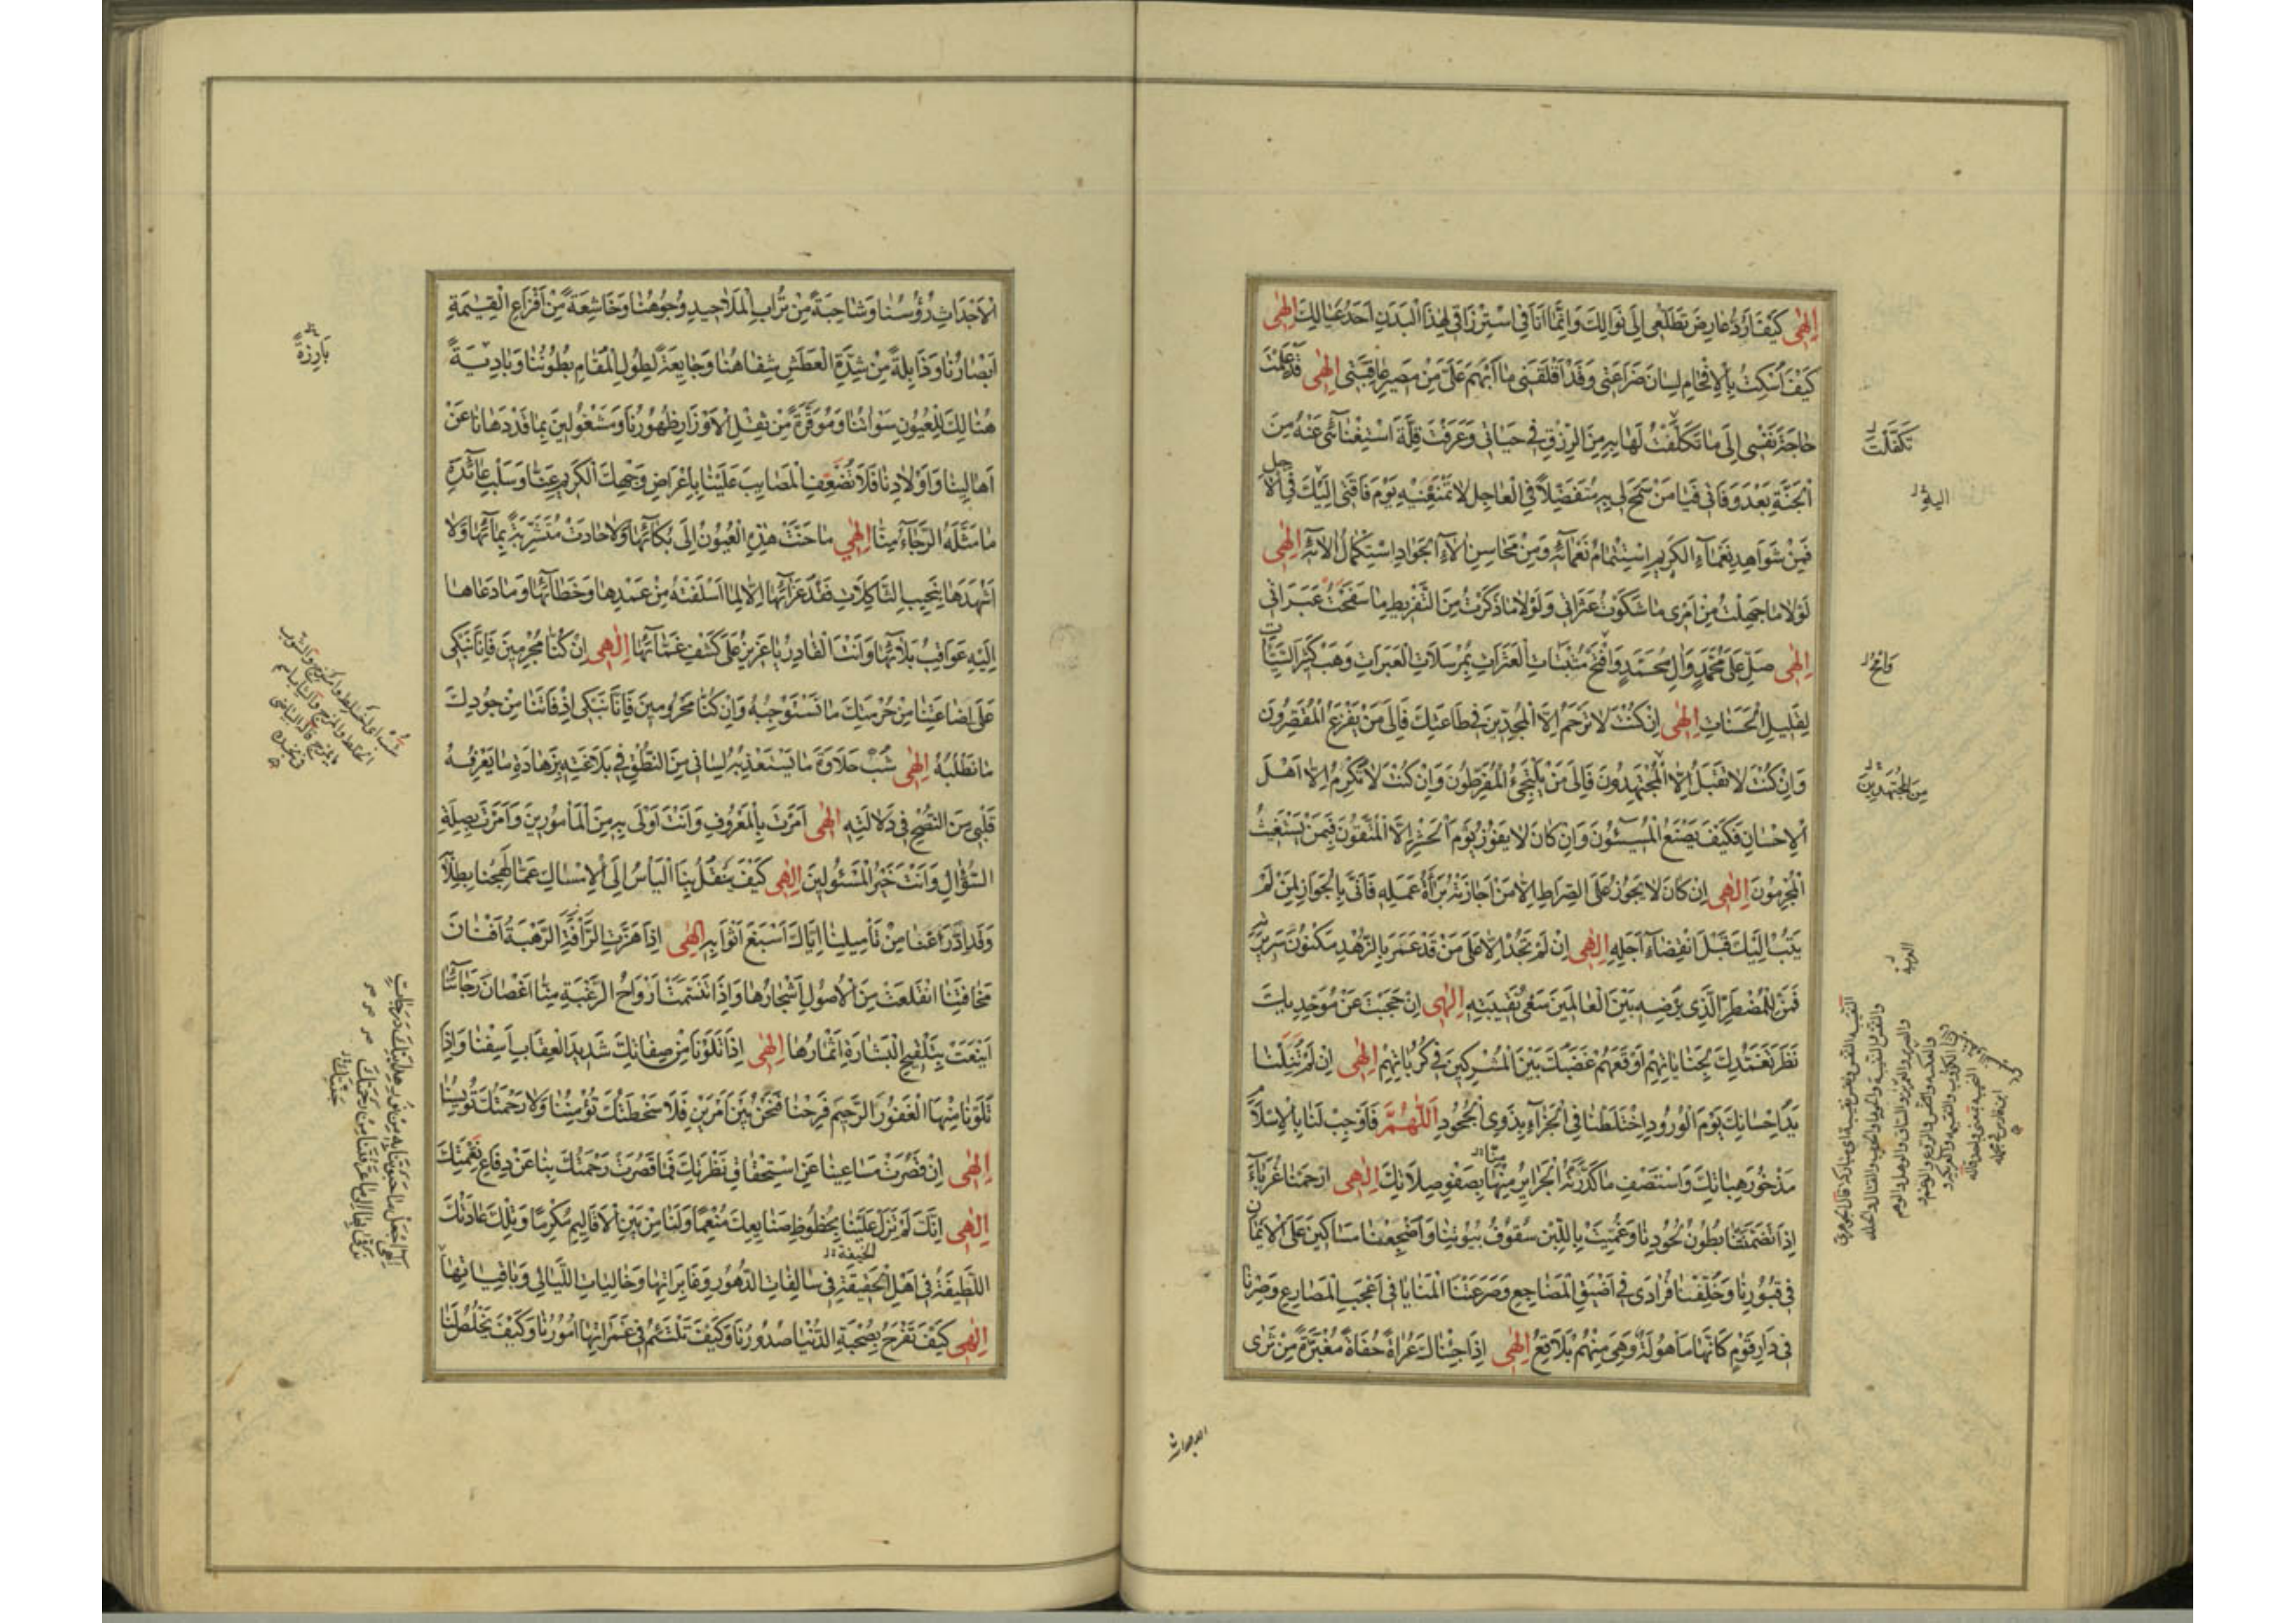 اِلٰهی كَیْفَ اَرُدُّ عَارِضَ تَطَلُّعی اِلٰی نَوَالِكَ وَاِنَّمَا اَنَا فِی اسْتِرْزَاقی لِهٰذَا الْبَدَنِ اَحَدُ عِیَالِكَ اِلٰهی
كَیْفَ اُسْكِتُ بِالْاِفْحَامِ لِسَانَ ضَرَاعَتی وَقَدْ اَقْلَقَنی مَا اُبْهِمَ عَلَیَّ مِنْ مَصیرِ عَاقِبَتی اِلٰهی قَدْ عَلِمْتَ
حَاجَةَ نَفْسی اِلٰی مَا تَكَلَّفْتَ لَهَا بِهِ مِنَ الرِّزْقِ فی حَیَاتی وَعَرَفْتَ قِلَّةَ اسْتِغْنَآئی عَنْهُ مِنَ
الْجَنَّةِ بَعْدَ وَفَاتی فَیَا مَنْ سَمَحَ لی بِهِ مُتَفَضِّلًا فِی الْعَاجِلِ لَا تَمْنَعْنیهِ یَوْمَ فَاقَتی اِلَیْكَ فِی الْاٰجِلِ
فَمِنْ شَوَاهِدِ نَعْمَآءِ الْكَریمِ اسْتِتْمَامُ نَعْمَآئِهِ وَمِنْ مَحَاسِنِ اٰلَآءِ الْجَوَادِ اسْتِكْمَالُ اٰلَآئِهِ اِلٰهی
لَوْلَا مَا جَهِلْتُ مِنْ اَمْری مَا شَكَوْتُ عَثَرَاتی وَلَوْلَا مَا ذَكَرْتُ مِنَ التَّفْریطِ مَا سَفَحْتُ عَبَرَاتی
اِلٰهی صَلِّ عَلٰی مُحَمَّدٍ وَاٰلِ مُحَمَّدٍ وَامْحُ مُثْبَتَاتِ الْعَثَرَاتِ بِمُرْسَلَاتِ الْعَبَرَاتِ وَهَبْ كَثیرَ السَّیِّئَاتِ
لِقَلیلِ الْحَسَنَاتِ اِلٰهی اِنْ كُنْتَ لَا تَرْحَمُ اِلَّا الْمُجِدّینَ فی طَاعَتِكَ فَاِلٰی مَنْ یَفْزَعُ الْمُقَصِّرُونَ
وَاِنْ كُنْتَ لَا تَقْبَلُ اِلَّا الْمُجْتَهِدُونَ فَاِلٰی مَنْ یَلْتَجِئُ الْمُفَرِّطُونَ وَاِنْ كُنْتَ لَا تُكْرِمُ اِلَّا اَهْلَ
الْاِحْسَانِ فَكَیْفَ یَصْنَعُ الْمُسیئُونَ وَاِنْ كَانَ لَا یَفُوزُ یَوْمَ الْحَشْرِ اِلَّا الْمُتَّقُونَ فَبِمَنْ یَسْتَغیثُ
الْمُجْرِمُونَ اِلٰهی اِنْ كَانَ لَا یَجُوزُ عَلَی الصِّرَاطِ اِلَّا مَنْ اَجَازَتْهُ بَرَآءَةُ عَمَلِهِ فَاَنّٰی بِالْجَوَازِ لِمَنْ لَمْ
یَتُبْ اِلَیْكَ قَبْلَ انْقِضَآءِ اَجَلِهِ اِلٰهی اِنْ لَمْ تَجُدْ اِلَّا عَلٰی مَنْ قَدْ عَمَرَ بِالزُّهْدِ مَكْنُونَ سَریرَتِهِ
فَمَنْ لِلْمُضْطَرِّ الَّذی یُرْضِهِ بَیْنَ الْعَالَمینَ سَعْیُ نَقیبَتِهِ اِلٰهی اِنْ حَجَبْتَ عَنْ مُوَحِّدیكَ
نَظَرَ تَغَمُّدِكَ لِجِنَایَاتِهِمْ اَوْقَعَهُمْ غَضَبُكَ بَیْنَ الْمُشْرِكینَ فی كُرُبَاتِهِمْ اِلٰهی اِنْ لَمْ تَنَلْنَا
یَدُ اِحْسَانِكَ یَوْمَ الْوُرُودِ اخْتَلَطْنَا فِی الْجَزَآءِ بِذَوِی الْجُحُودِ اَللّٰهُمَّ فَاَوْجِبْ لَنَا بِالْاِسْلَامِ
مَذْخُورَ هِبَاتِكَ وَاسْتَصْفِ مَا كَدَّرَتْهُ الْجَرَایِرُ مِنْهَا بِصَفْوِ صِلَاتِكَ اِلٰهی ارْحَمْنَا غُرَبَآءَ
اِذَا تَضَمَّنَتْنَا بُطُونُ لُحُودِنَا وَغُمِّیَتْ بِاللَّبِنِ سُقُوفُ بُیُوتِنَا وَاُضْجِعْنَا مَسَاكینَ عَلَی الْاَیْمَانِ
فی قُبُورِنَا وَخُلِّفْنَا فُرَادٰی فی اَضْیَقِ الْمَضَاجِعِ وَصَرَعَتْنَا الْمَنَایَا فی اَعْجَبِ الْمَصَارِعِ وَصِرْنَا
فی دَارِ قَوْمٍ كَاَنَّهَا مَاْهُولَةٌ وَهِیَ مِنْهُمْ بَلَاقِعُ اِلٰهی اِذَا جِئْنَاكَ عُرَاةً حُفَاةً مُغْبَرَّةً مِنْ ثَرَی
تَكَفَّلْتَ
الیه
وَامْحُ
مِنَ الْمُجْتَهِدینَ
منا
الاجداث
الْاَجْدَاثِ رُؤُسُنَا وَشَاحِبَةً مِنْ تُرَابِ الْمَلَاحیدِ وُجُوهُنَا وَخَاشِعَةً مِنْ اَفْزَاعِ الْقِیٰمَةِ
اَبْصَارُنَا وَذَابِلَةً مِنْ شِدَّةِ الْعَطَشِ شِفَاهُنَا وَجَایِعَةً لِطُولِ الْمَقَامِ بُطُونُنَا وَبَادِیَةً
هُنَالِكَ لِلْعُیُونِ سَوْاٰتُنَا وَمُوقَرَةً مِنْ ثِقْلِ الْاَوْزَارِ ظُهُورُنَا وَمَشْغُولینَ بِمَا قَدْ دَهَانَا عَنْ
اَهَالینَا وَاَوْلَادِنَا فَلَا تُضَعِّفِ الْمَصَایِبَ عَلَیْنَا بِاِعْرَاضِ وَجْهِكَ الْكَریمِ عَنَّا وَسَلْبِ عَآئِدَةِ
مَا مَثَّلَهُ الرَّجَآءُ مِنَّا اِلٰهی مَا حَنَّتْ هٰذِهِ الْعُیُونُ اِلٰی بُكَآئِهَا وَلَا جَادَتْ مُتَشَرِّبَةً بِمَآئِهَا وَلَا
اَشْهَدَهَا بِنَحیبِ الثَّاكِلَاتِ فَقْدُ عَزَآئِهَا اِلَّا لِمَا اَسْلَفَتْهُ مِنْ عَمْدِهَا وَخَطَآئِهَا وَمَا دَعَاهَا
اِلَیْهِ عَوَاقِبُ بَلَآئِهَا وَاَنْتَ الْقَادِرُ یَا عَزیزُ عَلٰی كَشْفِ غَمَّآئِهَا اِلٰهی اِنْ كُنَّا مُجْرِمینَ فَاِنَّا نَبْكی
عَلٰی اِضَاعَتِنَا مِنْ حُرْمَتِكَ مَا نَسْتَوْجِبُهُ وَاِنْ كُنَّا مَحْرُومینَ فَاِنَّا نَبْكی اِذْ فَاتَنَا مِنْ جُودِكَ
مَا نَطْلُبُهُ اِلٰهی شُبْ حَلَاوَةَ مَا یَسْتَعْذِبُهُ لِسَانی مِنَ النُّطْقِ فی بَلَاغَتِهِ بِزَهَادَةِ مَا یَعْرِفُهُ
قَلْبی مِنَ النُّصْحِ فی دَلَالَتِهِ اِلٰهی اَمَرْتَ بِالْمَعْرُوفِ وَاَنْتَ اَوْلٰی بِهِ مِنَ الْمَاْمُورینَ وَاَمَرْتَ بِصِلَةِ
السُّؤَالِ وَاَنْتَ خَیْرُ الْمَسْئُولینَ اِلٰهی كَیْفَ یَنْقُلُ بِنَا الْیَاْسُ اِلَی الْاِمْسَاكِ عَمَّا لَهِجْنَا بِطِلَابِهِ
وَقَدِ ادَّرَعْنَا مِنْ تَاْمیلِنَا اِیَّاكَ اَسْبَغَ اَثْوَابِهِ اِلٰهی اِذَا هَزَّتِ الرَّهْبَةُ اَفْنَانَ
مَخَافَتِنَا انْقَلَعَتْ مِنَ الْاُصُولِ اَشْجَارُهَا وَاِذَا تَنَسَّمَتْ اَرْوَاحُ الرَّغْبَةِ مِنَّا اَغْصَانَ رَجَآئِنَا
اَیْنَعَتْ بِتَلْقیحِ الْبِشَارَةِ اَثْمَارُهَا اِلٰهی اِذَا تَلَوْنَا مِنْ صِفَاتِكَ شَدیدَ الْعِقَابِ اَسِفْنَا وَاِذَا
تَلَوْنَا مِنْهَا الْغَفُورَ الرَّحیمَ فَرِحْنَا فَنَحْنُ بَیْنَ اَمْرَیْنِ فَلَا سَخْطَتُكَ تُؤْمِنُنَا وَلَا رَحْمَتُكَ تُؤْیِسُنَا
اِلٰهی اِنْ قَصُرَتْ مَسَاعینَا عَنِ اسْتِحْقَاقِ نَظْرَتِكَ فَمَا قَصُرَتْ رَحْمَتُكَ بِنَا عَنْ دِفَاعِ نَقِمَتِكَ
اِلٰهی اِنَّكَ لَمْ تَزَلْ عَلَیْنَا بِحُظُوظِ صَنَایِعِكَ مُنْعِمًا وَلَنَا مِنْ بَیْنِ الْاَقَالیمِ مُكْرِمًا وَتِلْكَ عَادَتُكَ
اللَّطیفَةُ فی اَهْلِ الْحَقیقَةِ فی سَالِفَاتِ الدُّهُورِ وَغَابِرَاتِهَا وَخَالِیَاتِ اللَّیَالی وَبَاقِیَاتِهَا
اِلٰهی كَیْفَ تَفْرَحُ بِصُحْبَةِ الدُّنْیَا صُدُورُنَا وَكَیْفَ تَلْتَئِمُ فی غَمَرَاتِهَا اُمُورُنَا وَكَیْفَ یَخْلُصُ لَنَا
بَارِزَةً
الحنیفة
اِلٰهی اجْعَلْ مَا حَبَوْتَنَا بِهِ مِنْ نُورِ هِدَایَتِكَ دَرَجَاتٍ
نَرْقٰی بِهَا اِلٰی مَا عَرَّفْتَنَا مِنْ رَحْمَتِكَ
جَنَّتِكَ